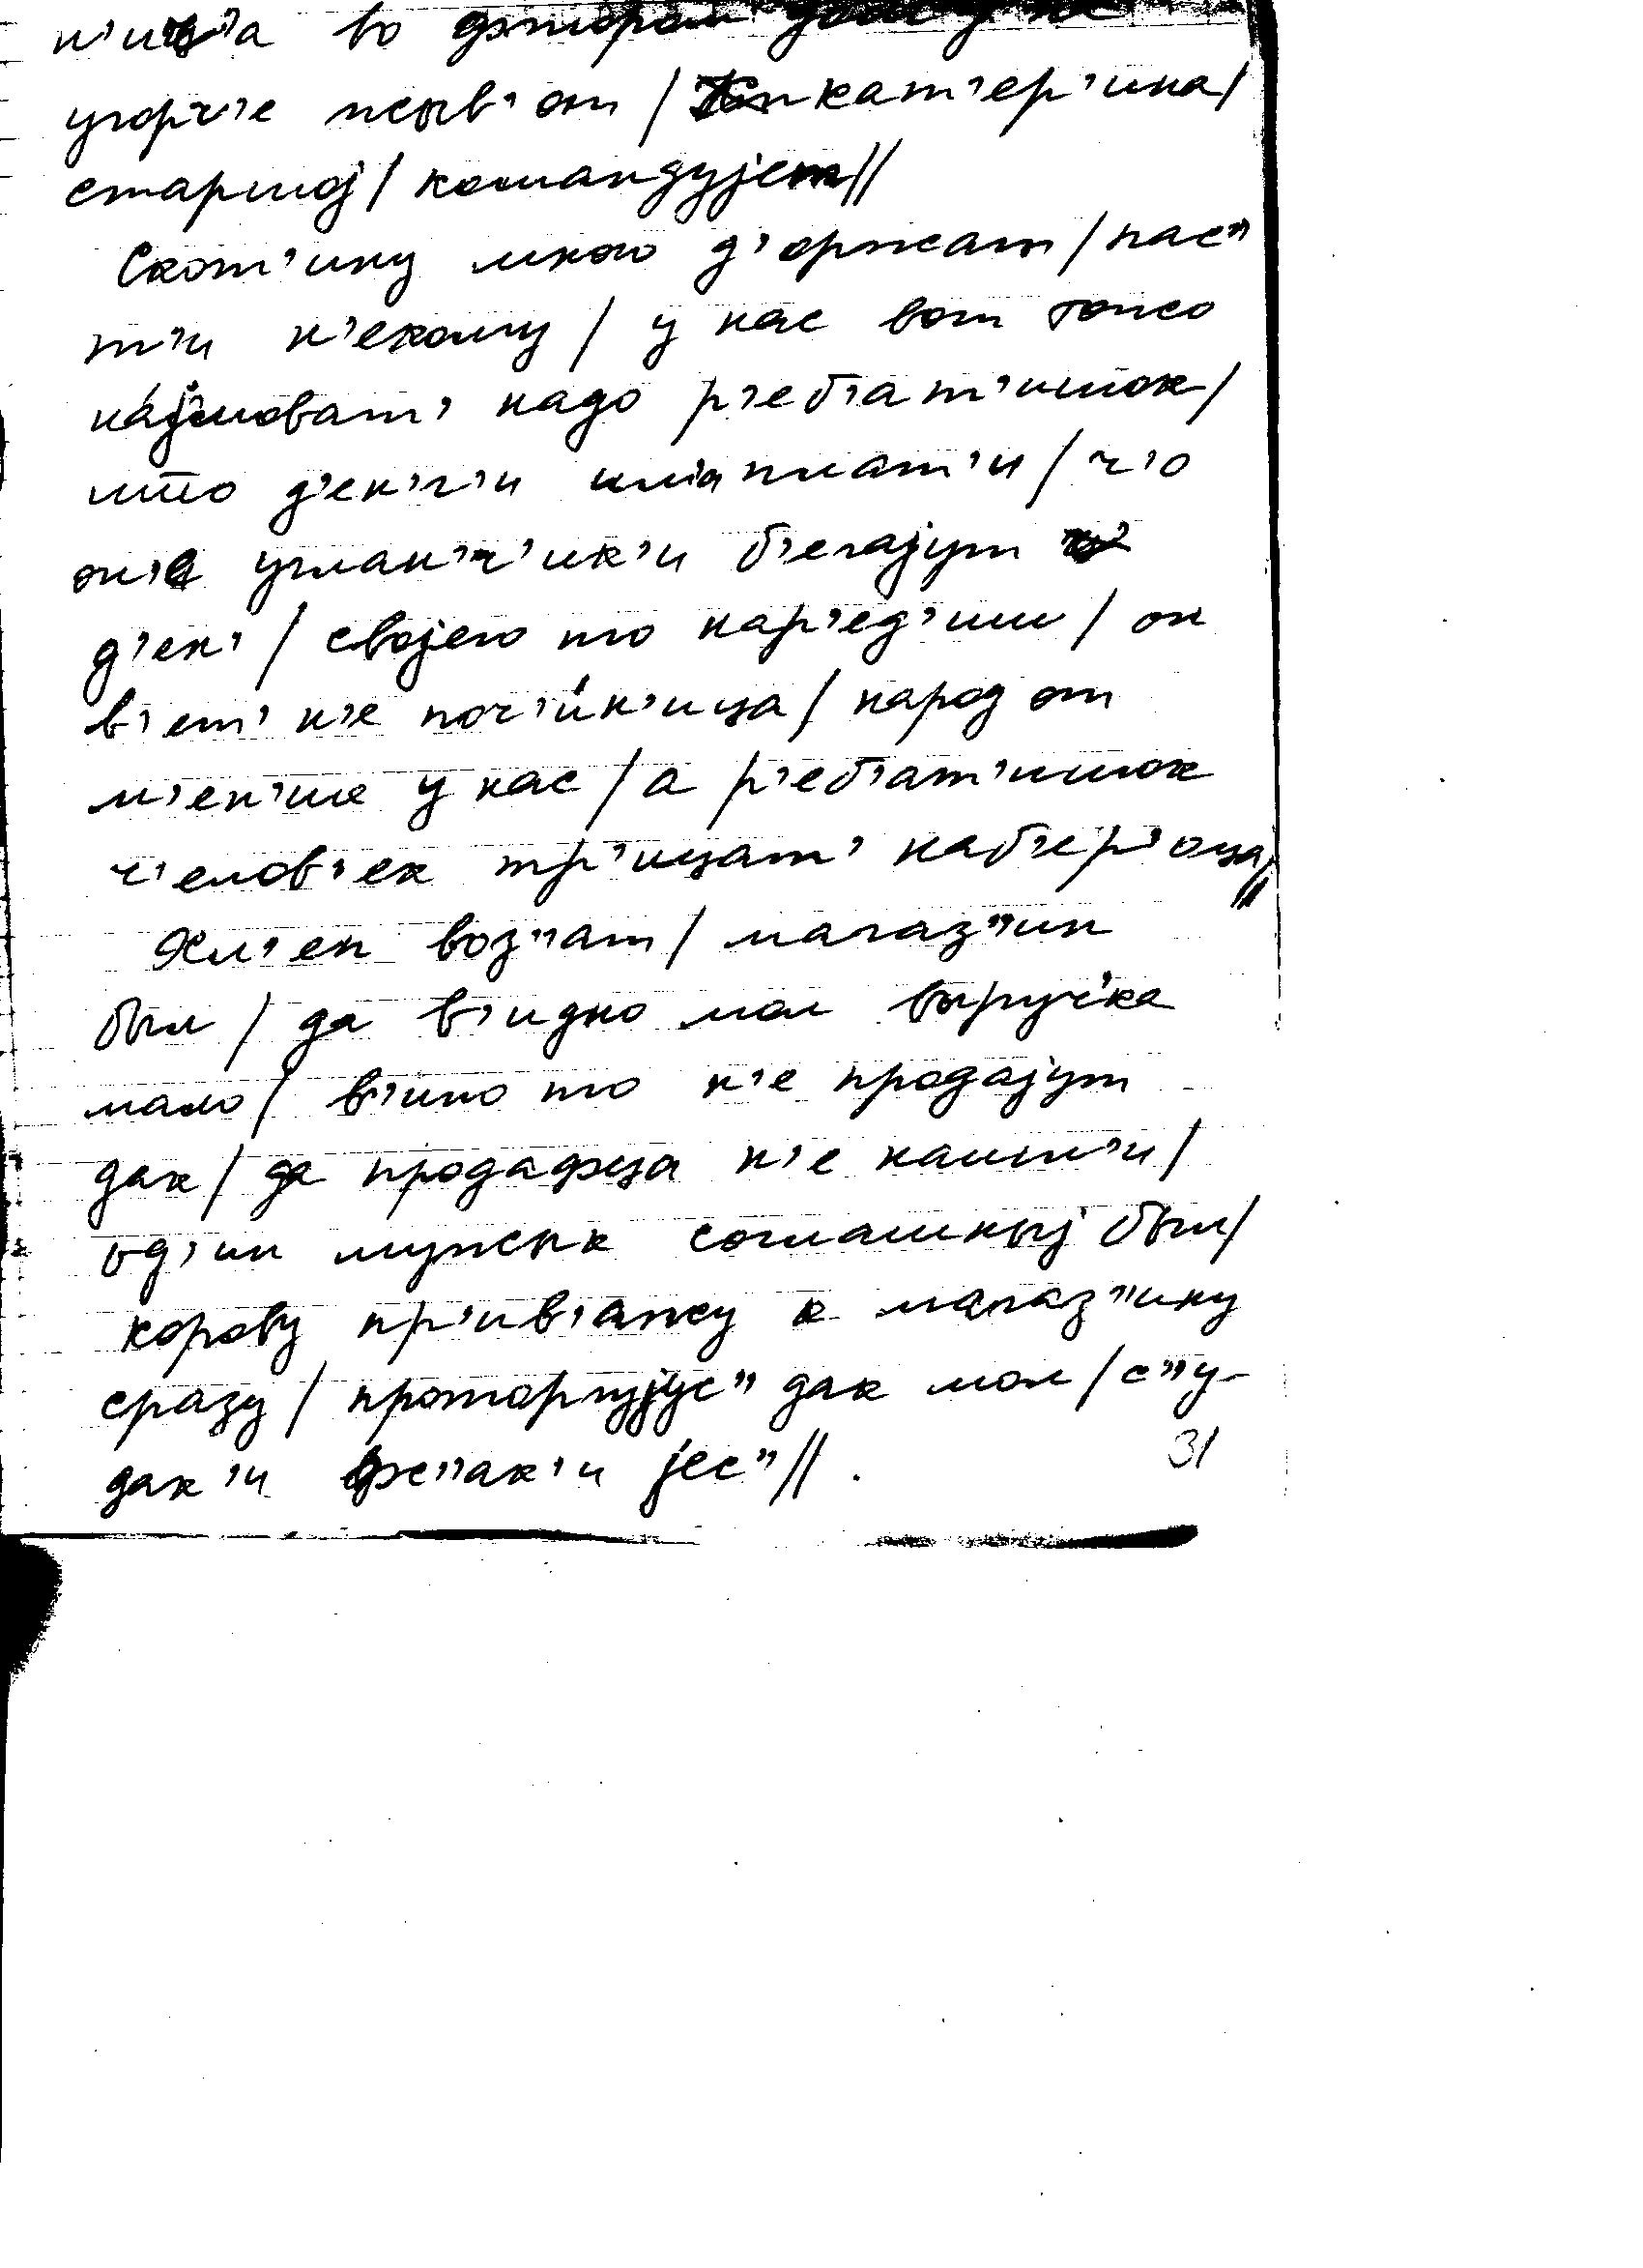 во фтором дому на
угорч'е жыв'от / катк'ер'ина /
старшој / командујет //
Скот'ину много д'оржат / пас"
т'и н'екому / у нас вот тожо
на́јмоват' надо р'еб'ат'ишок /
што д'ен'г'и им'а плат'и / ч'о
он'е углан'ч'ик'и б'егајут
д'ен' / својего то нар'ед'иш / он
в'ет' н'е поч'и́н'ица / народ от
м'ен'ше у нас / а р'еб'ат'ишок
ч'елов'ек тр'ицат' наб'ер'оца //
Хл'еп воз"ат / магаз"ин
был / да в'идно мол выруч'ка
мало / в'ино то н'е продајут
дак / да продафца н'е нашт'и /
од'ин мужык соглашныј был /
корову пр'ив'ажу к магаз"ину
сразу / проторгујус" дак мол / с"у-
дак'и фс"ак'и јес" // .
31